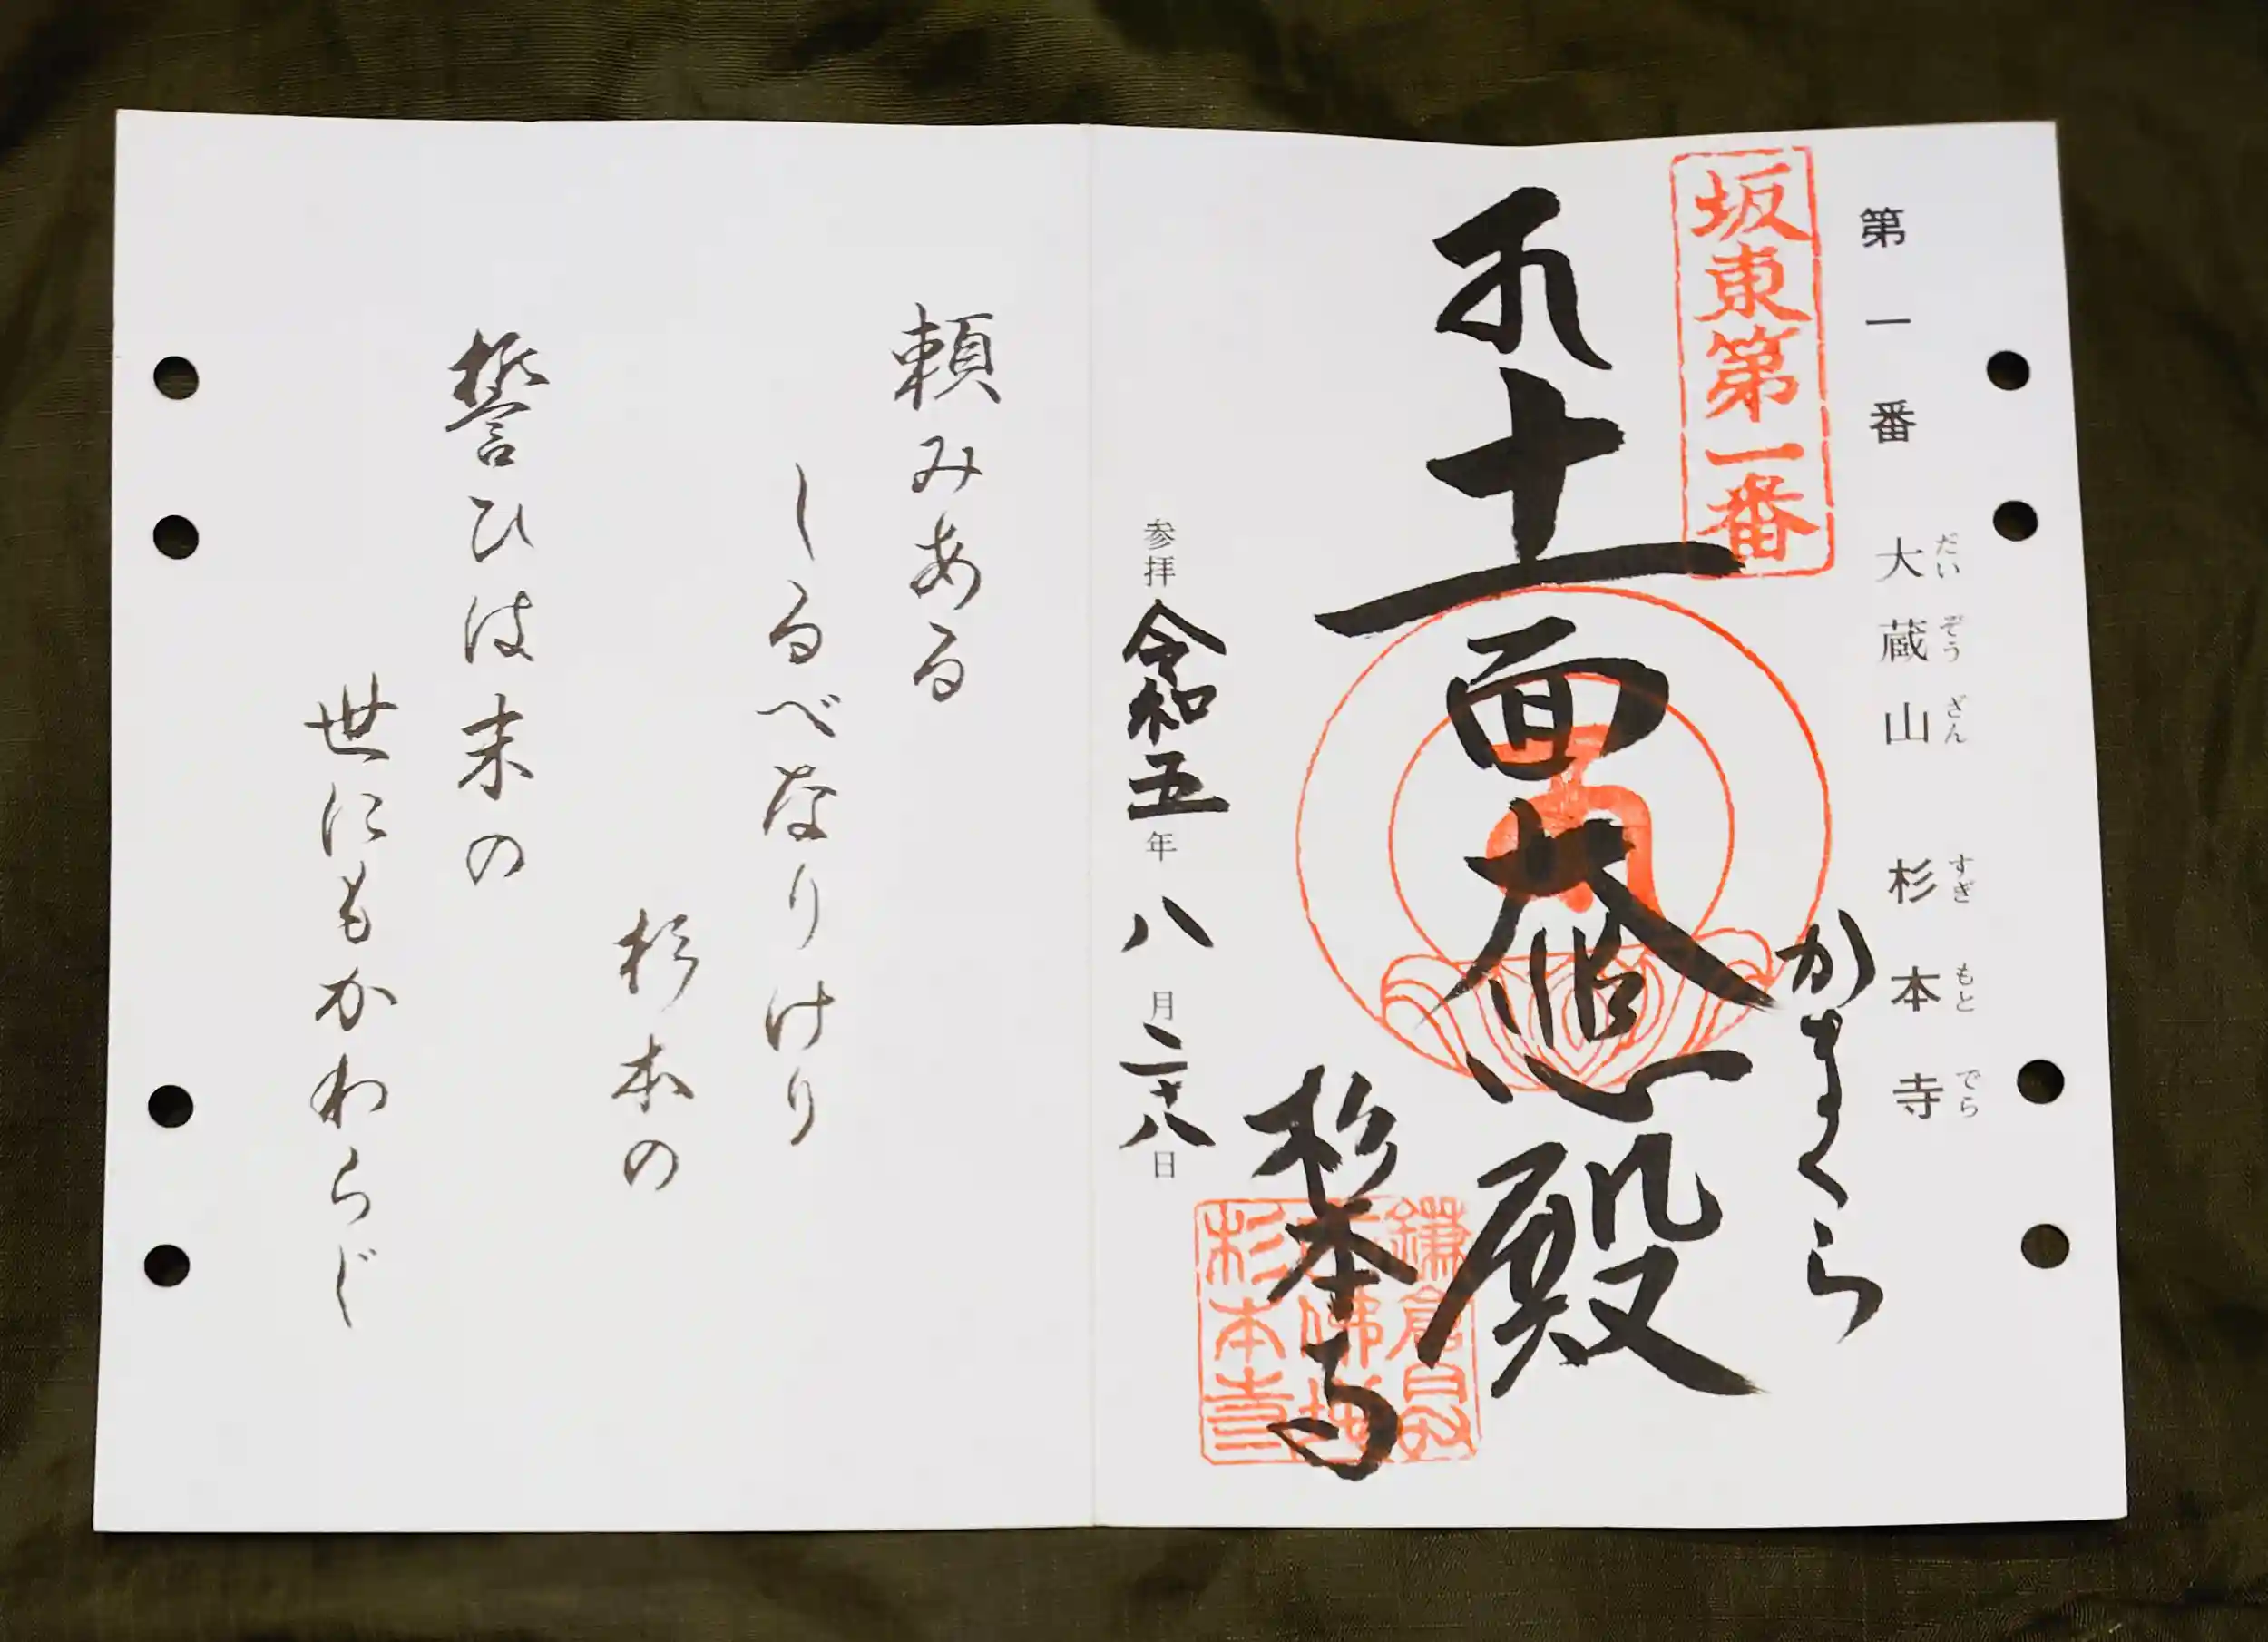 第一番 大蔵山 杉本寺
だいぞうざん すぎもとでら
坂東第一番
かまくら
十一面大悲殿
杉本寺
鎌倉最
佛地
杉本寺
参拝 令和五年八月二十八日
頼みある
しるべなりけり
杉本の
誓ひは末の
世にもかわらじ